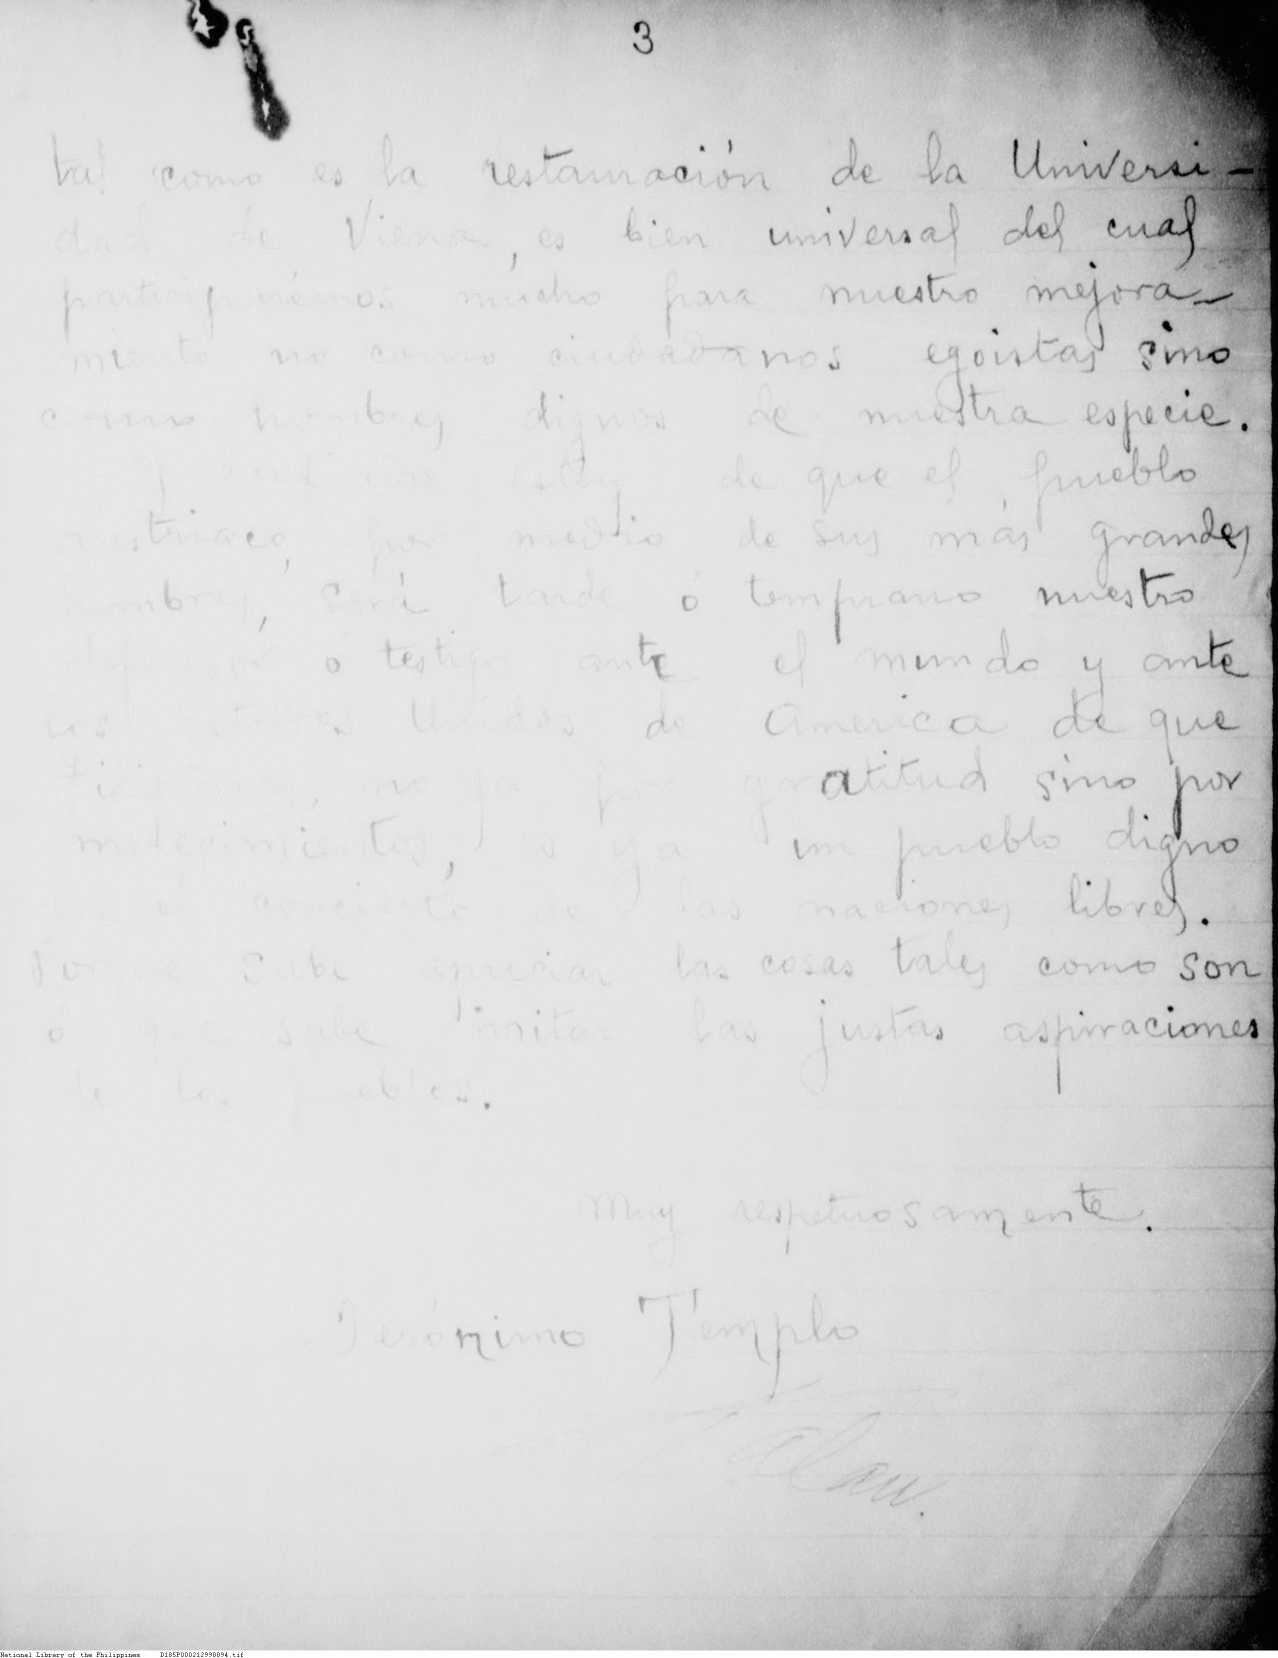 3
tal como es la restauración de la Universi-
dad de Viena, es bien universal del cual
participaremos mucho para nuestro mejora-
miento no como ciudadanos egoistas sino
como hombres dignos de nuestra especie.
Y estoy de que el pueblo
austriaco, por medio de sus más grandes
hombres, será tarde ó temprano nuestro
ó testigo ante el mundo y ante
los Estados Unidos de America de que
Filipinas, no ya por gratitud sino por
merecimientos, es ya un pueblo digno
en el concierto de las naciones libres.
Porque sabe apreciar las cosas tales como son
ó que sabe imitar las justas aspiraciones
de los pueblos.
Muy respetuosamente.
Jerónimo Templo
Talaw.
National Library of the Philippines D185P000212998094.tif